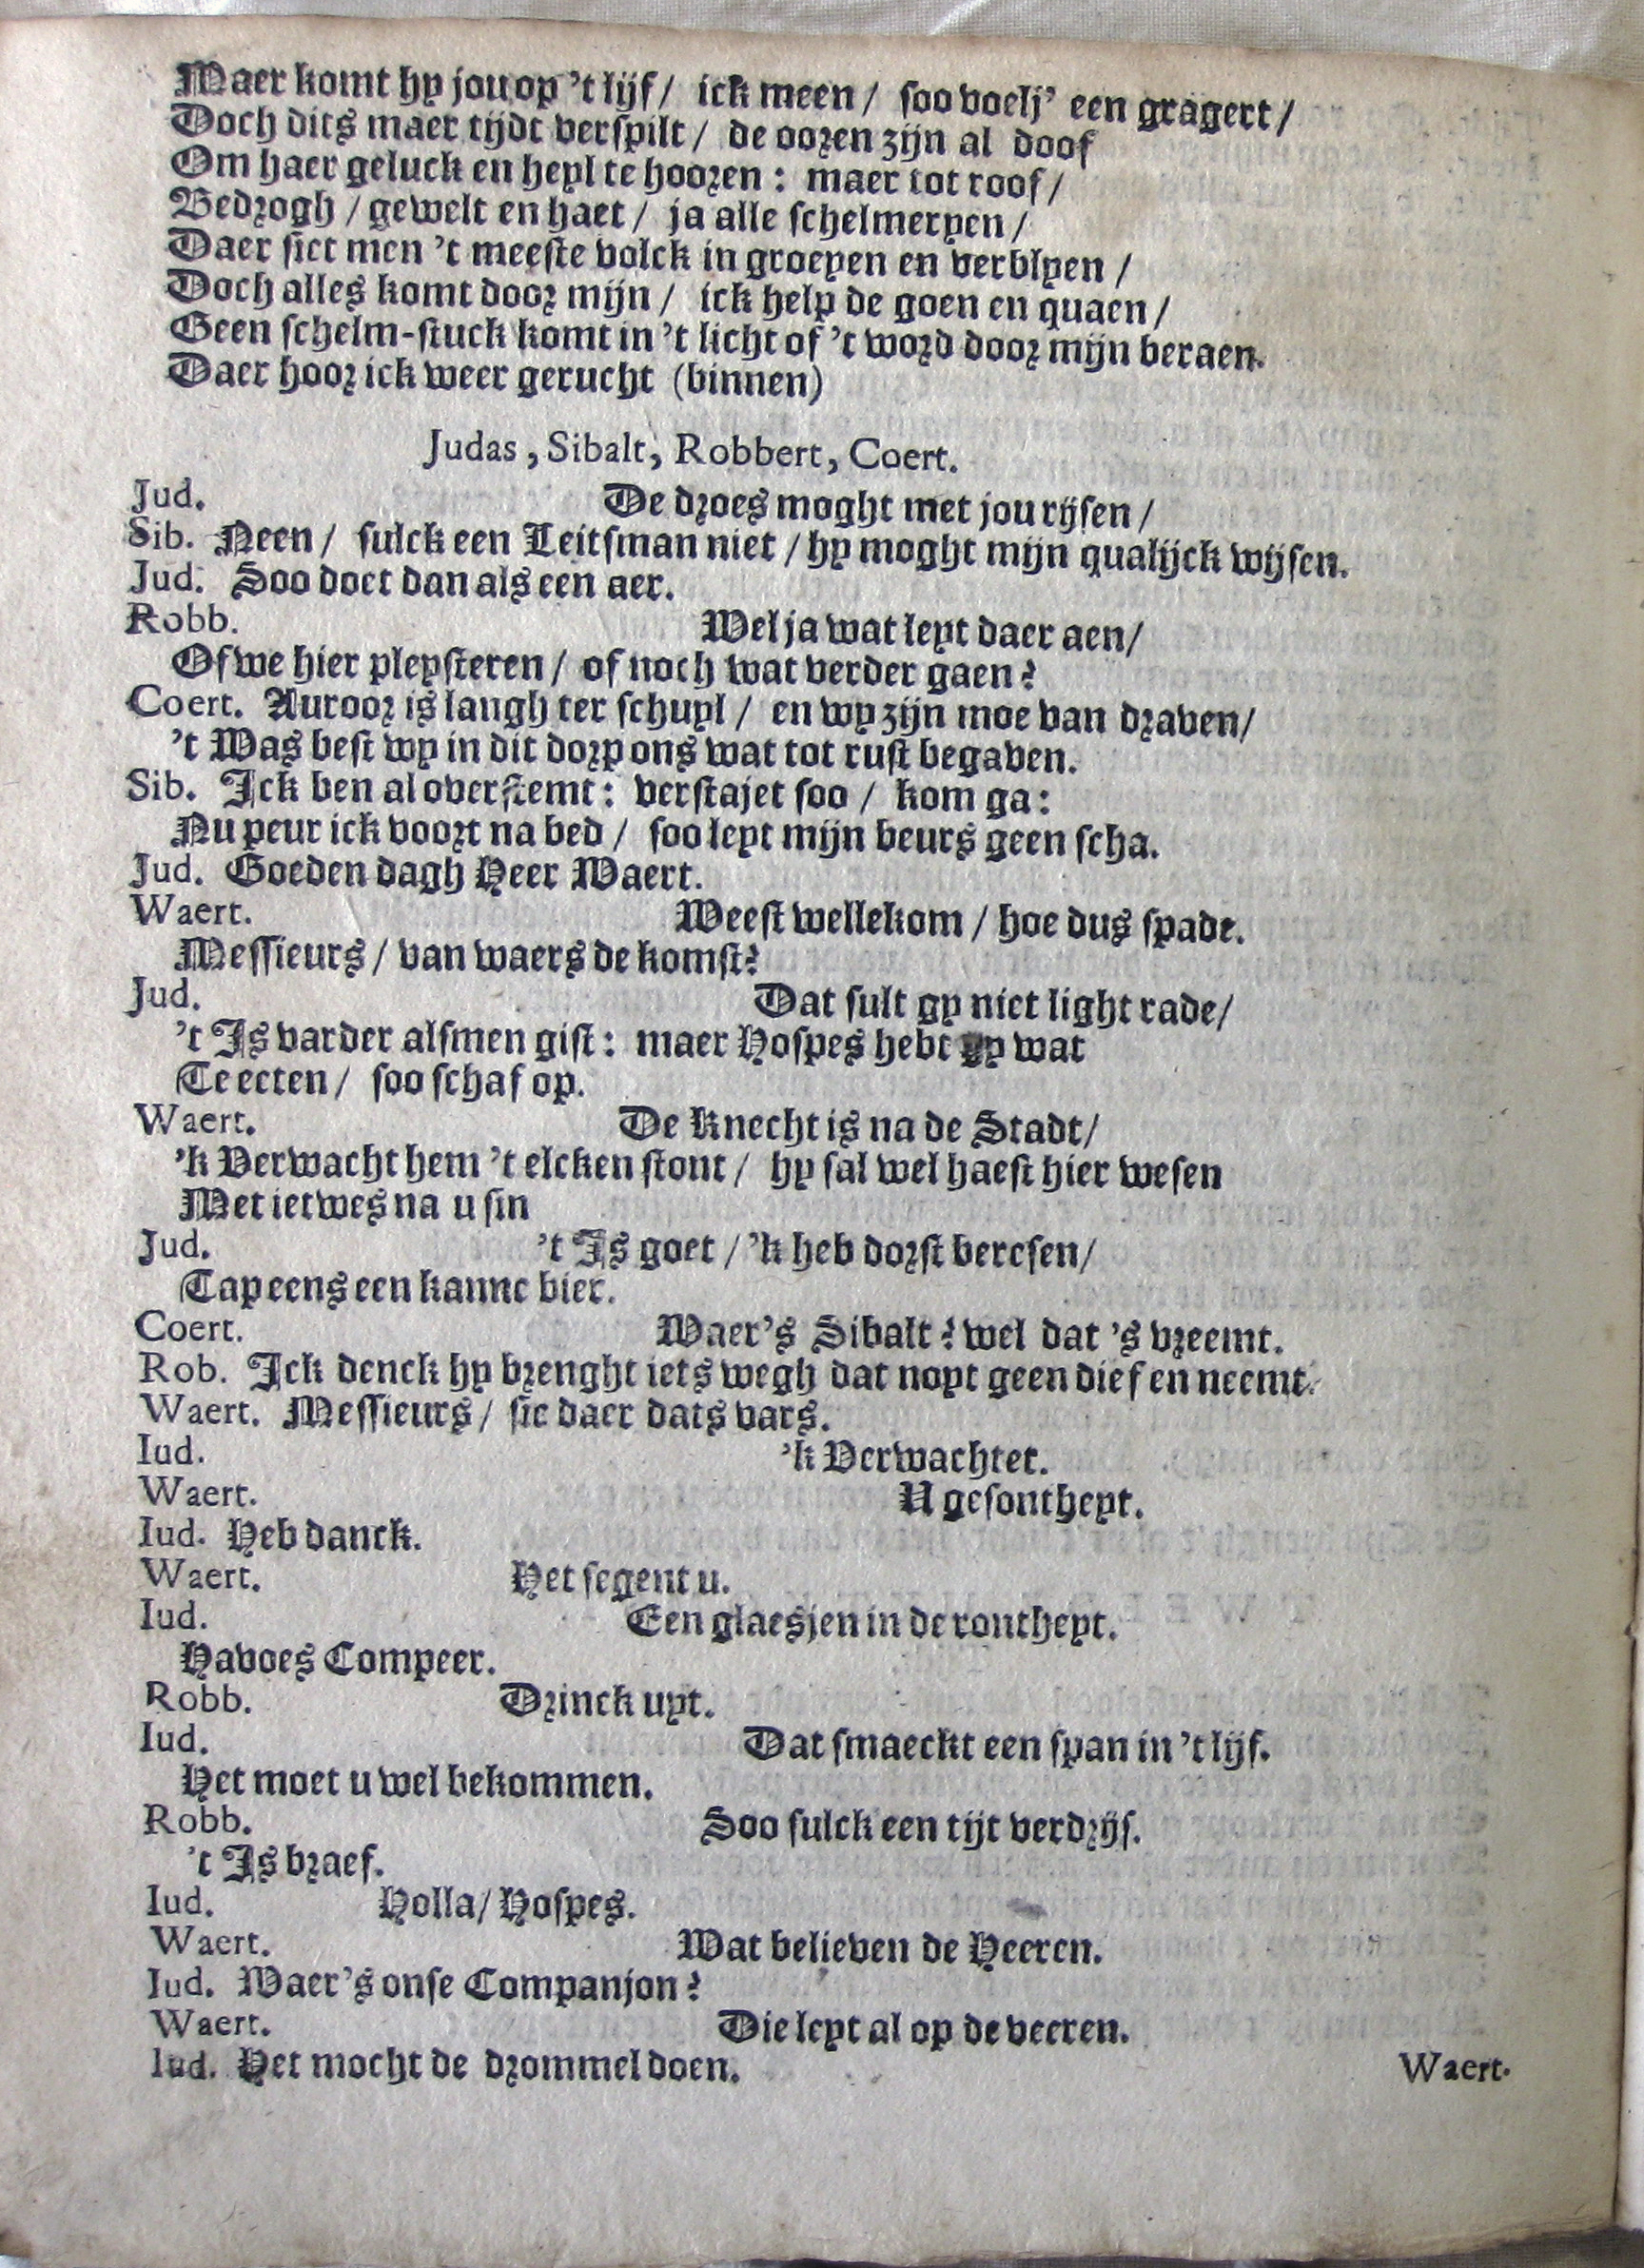 Maer komt hy jou op 't lijf / ick meen / soo voelj' een gragert /
Doch dits maer tijdt verspilt / de ooren zijn al doof
Om haer geluck en heyl te hooren : maer tot roof /
Bedrogh / gewelt en haet / ja alle schelmeryen /
Daer siet men 't meeste volck in groeyen en verblyen /
Doch alles komt door mijn / ick help de goen en quaen /
Geen schelm-stuck komt in 't licht of 't word door mijn beraen.
Daer hoor ick weer gerucht (binnen)
Judas, Sibalt, Robbert, Coert.
Jud. De droes moght met jou rijsen /
Sib. Neen / sulck een Leitsman niet / hy moght mijn qualijck wijsen.
Jud. Soo doet dan als een aer.
Robb. Wel ja wat leyt daer aen /
Of we hier pleysteren / of noch wat verder gaen ?
Coert. Auroor is langh ter schuyl / en wy zijn moe van draven /
't Was best wy in dit dorp ons wat tot rust begaven.
Sib. Ick ben al overstemt : verstajet soo / kom ga :
Nu peur ick voort na bed / soo leyt mijn beurs geen scha.
Jud. Goeden dagh Heer Waert.
Waert. Weest wellekom / hoe dus spade.
Messieurs / van waers de komst ?
Jud. Dat sult gy niet light rade /
't Is varder alsmen gist : maer Hospes hebt gy wat
Te ecten / soo schaf op.
Waert. De knecht is na de Stadt /
'k Verwacht hem 't elcken stont / hy sal wel haest hier wesen
Met ietwes na u sin
Jud. 't Is goet / 'k heb dorst beresen /
Tap eens een kanne bier.
Coert. Waer's Sibalt ? wel dat 's vreemt.
Rob. Ick denck hy brenght iets wegh dat noyt geen dief en neemt.
Waert. Messieurs / sie daer dats vars.
Iud. 'k Verwachtet.
Waert. U gesontheyt.
Iud. Heb danck.
Waert. Het segent u.
Iud. Een glaesjen in de rontheyt.
Havoes Compeer.
Robb. Drinck uyt.
Iud. Dat smaeckt een span in 't lijf.
Het moet u wel bekommen.
Robb. Soo sulck een tijt verdrijf.
't Is braef.
Iud. Holla / Hospes.
Waert. Wat believen de Heeren.
Iud. Waer's onse Companjon ?
Waert. Die leyt al op de veeren.
Iud. Het mocht de drommel doen.
Waert.